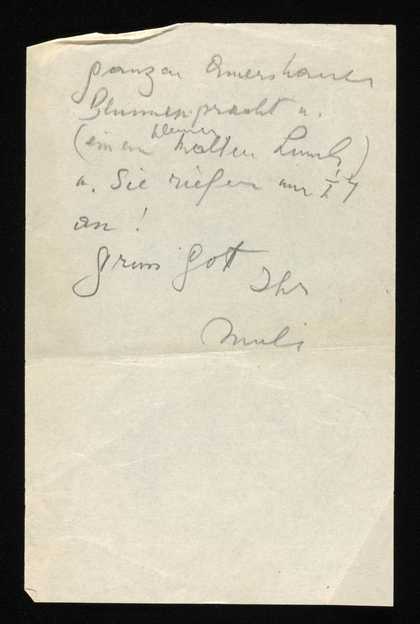 ganzen
Blumenpracht u.
(einem kleinen kalten Lunch)
u. Sie riefen mir
an!
Grüss Gott
Ihr